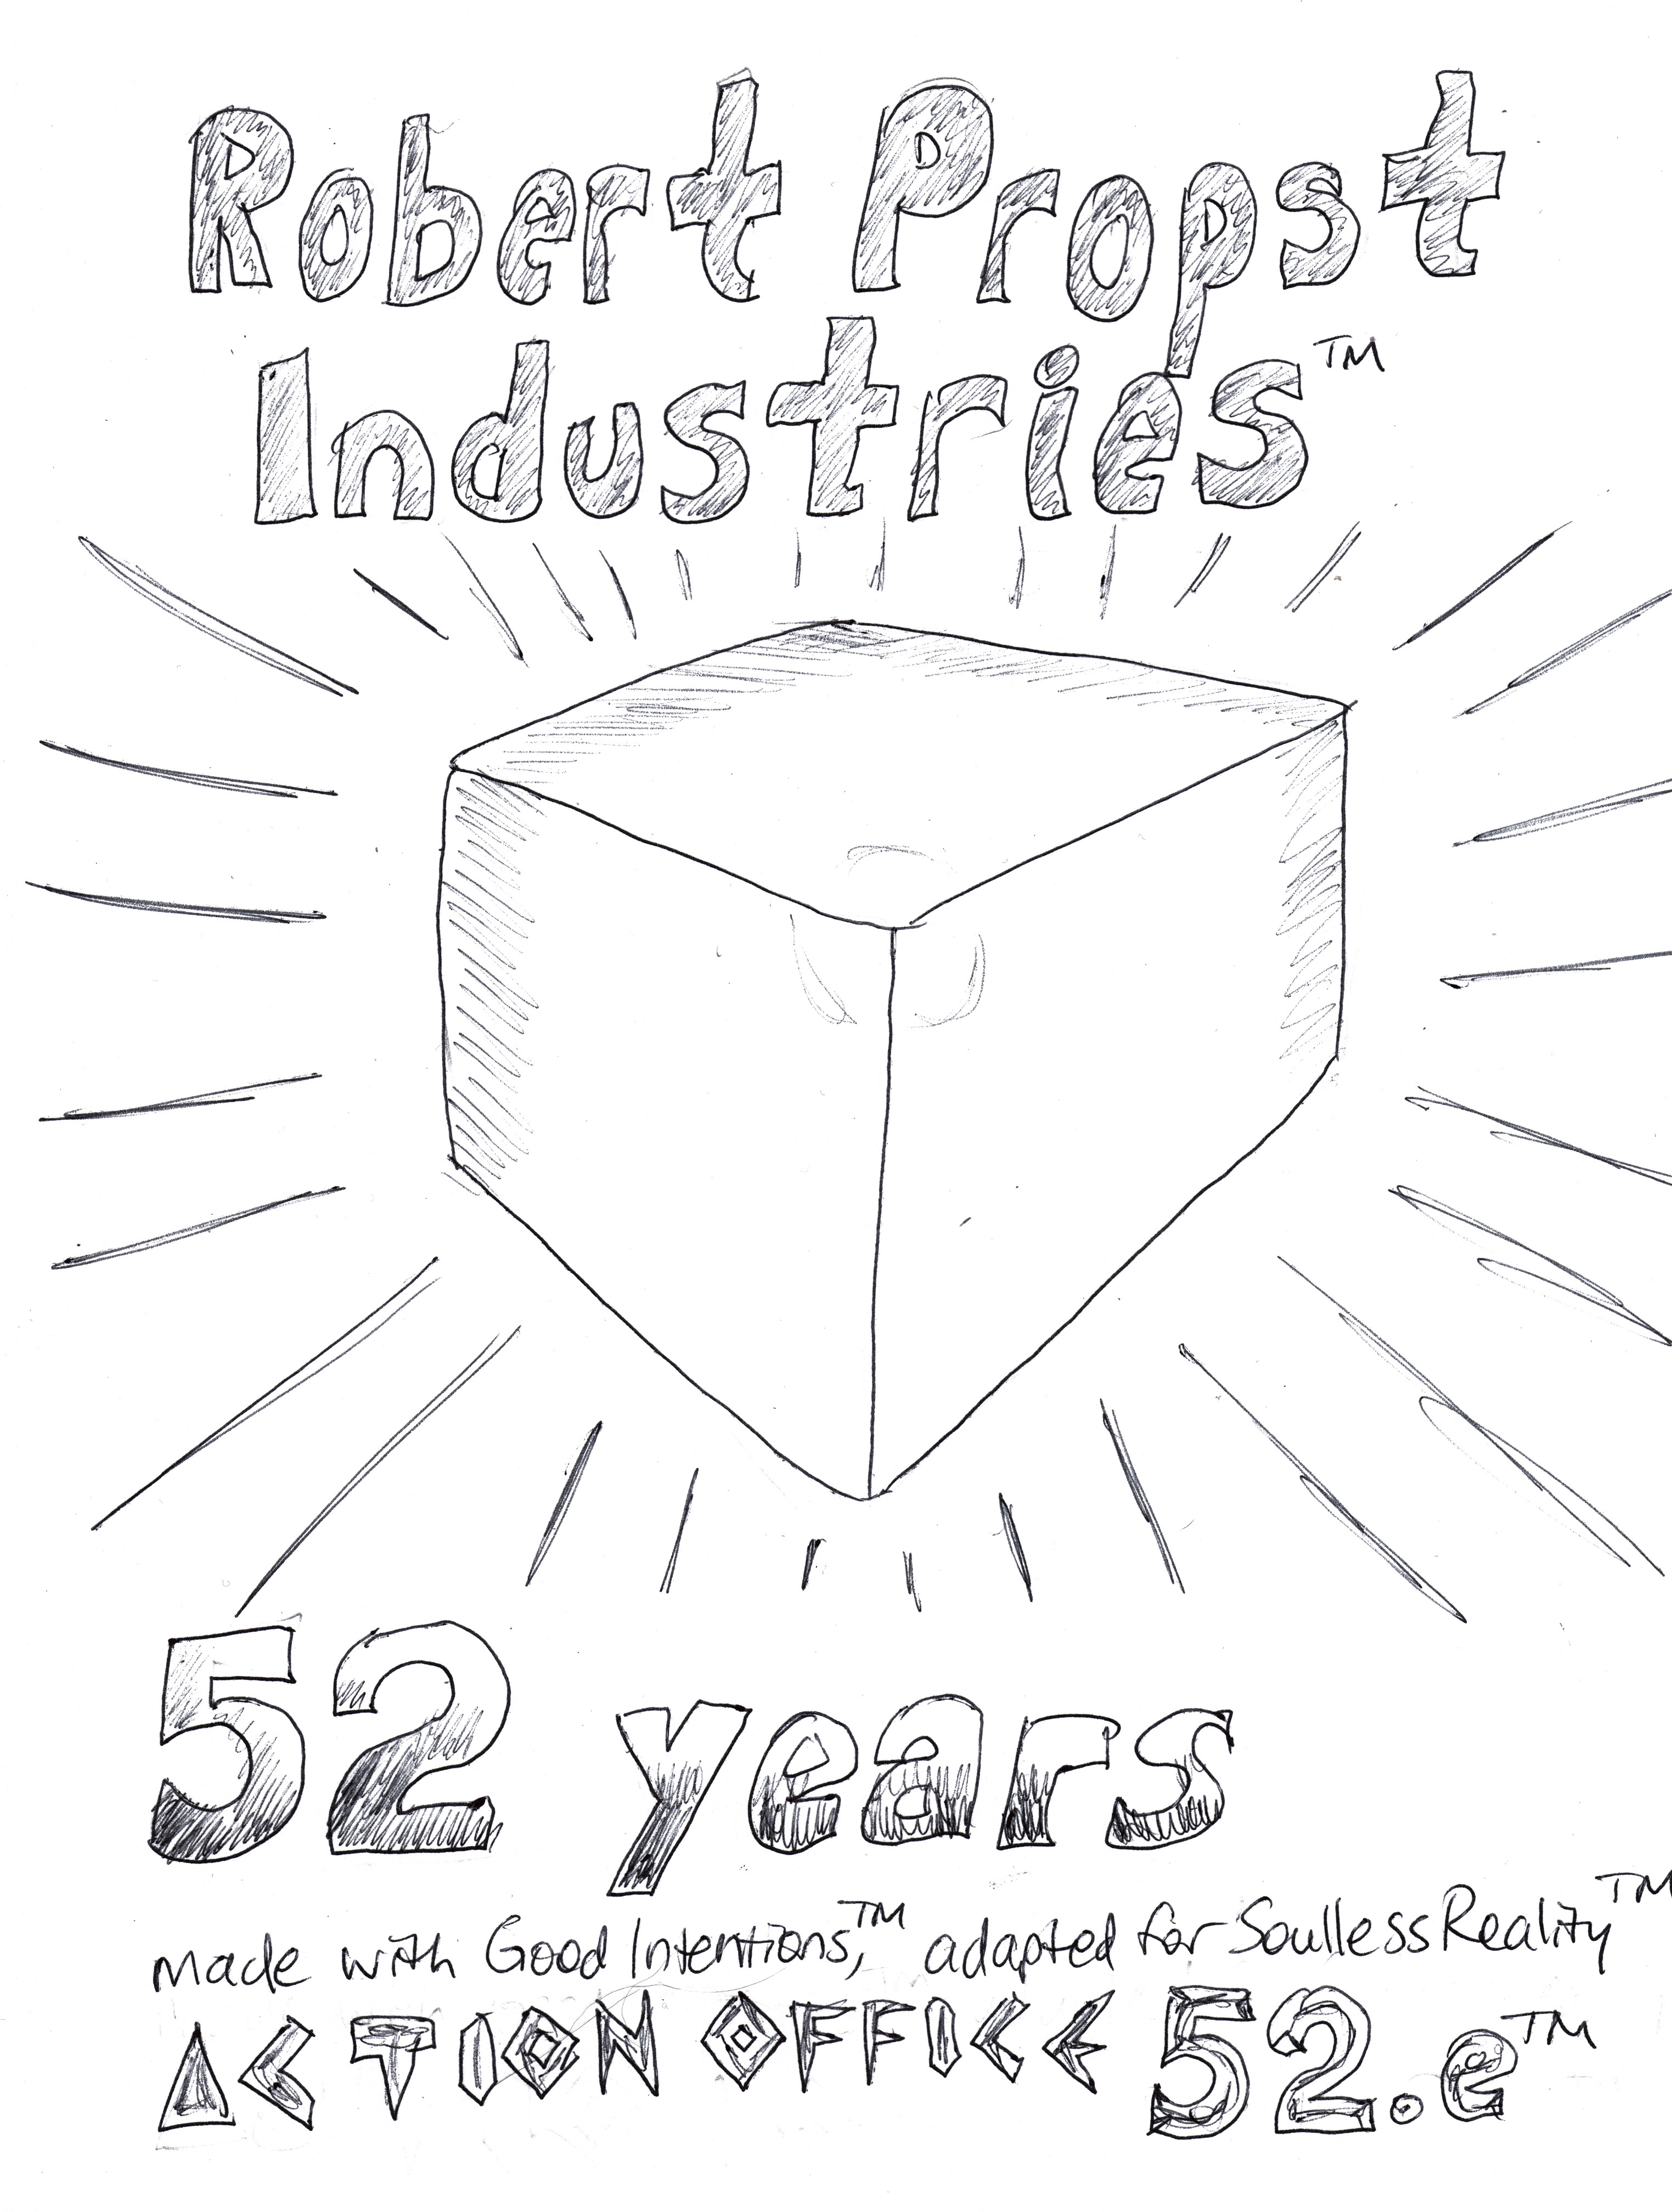 Robert Propst
Industries™
52 years
made with Good Intentions,™ adapted for Soulless Reality™
ACTION OFFICE 52.e™